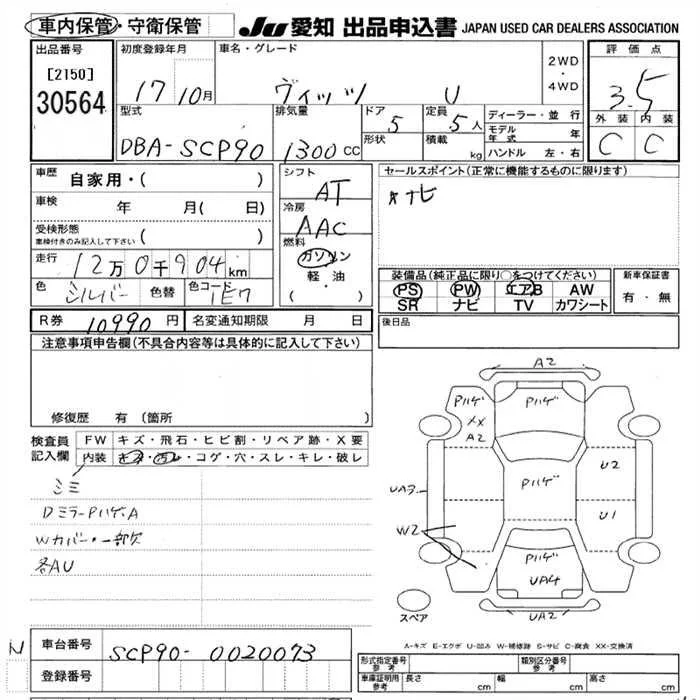 車内保管・守衛保管 JU 愛知 出品申込書 JAPAN USED CAR DEALERS ASSOCIATION
出品番号 初度登録年月 車名・グレード 2WD・4WD 評価点
[2150] 17 10月 ヴィッツ U 3.5
30564
型式 排気量 ドア 5 定員 5人 ディーラー・並行 外装 内装
DBA-SCP90 1300CC 形状 積載 kg モデル年式 年 C C
ハンドル 左・右
車歴 自家用・( ) シフト AT セールスポイント(正常に機能するものに限ります)
車検 年 月( 日) 冷房 AAC ナビ
受検形態 車検付きのみ記入して下さい ( ) 燃料 ガソリン
走行 12万0千904km 軽・油 装備品(純正品に限り○をつけてください) 新車保証書
色 シルバー 色替 色コード 1E7 ( ・ ) PS PW エアB AW 有・無
SR ナビ TV カワシート
R券 10990円 名変通知期限 月 日 後日品
注意事項申告欄(不具合内容等は具体的に記入して下さい)
修復歴 有(箇所 )
検査員記入欄 FW キズ・飛石・ヒビ割・リペア跡・X要
内装 キズ・汚レ・コゲ・穴・スレ・キレ・破レ
シミ
DミラーPハゲ.A
Wカバー・一部欠
各AU
A2
Pハゲ
Pハゲ
XX
A2
U2
UA3
Pハゲ
U1
W2
Pハゲ
UA4
スペア
UA2
A-キズ E-エクボ U-凹み W-補修跡 S-サビ C-腐食 XX-交換済
車台番号 SCP90-0020073
登録番号
型式指定番号 参考 類別区分番号 参考
車庫証明用 参考 長さ cm 幅 cm 高さ cm